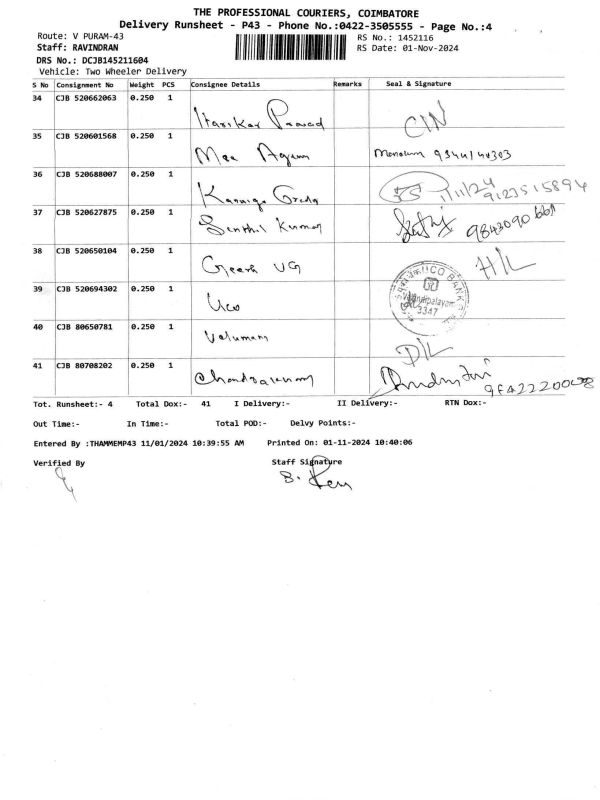 THE PROFESSIONAL COURIERS, COIMBATORE
Delivery Runsheet - P43 - Phone No.:0422-3505555 - Page No.:4
Route: V PURAM-43
RS No.: 1452116
Staff: RAVINDRAN
RS Date: 01-Nov-2024
DRS No.: DCJB145211604
Vehicle: Two Wheeler Delivery
S No Consignment No Weight PCS Consignee Details Remarks Seal & Signature
34 CJB 520662063 0.250 1
Harikar Prasad CIN
35 CJB 520601568 0.250 1
Maa
36 CJB 520688007 0.250 1
1/11/24
9123515894
37 CJB 520627875 0.250 1
Senthil Kumar
38 CJB 520650104 0.250 1
VG H/L
39 CJB 520694302 0.250 1
Uco UCO BANK 3347
40 CJB 80650781 0.250 1
Velumani D/L
41 CJB 80708202 0.250 1
Tot. Runsheet:- 4 Total Dox:- 41 I Delivery:- II Delivery:- RTN Dox:-
Out Time:- In Time:- Total POD:- Delvy Points:-
Entered By :THAMMEMP43 11/01/2024 10:39:55 AM Printed On: 01-11-2024 10:40:06
Verified By Staff Signature